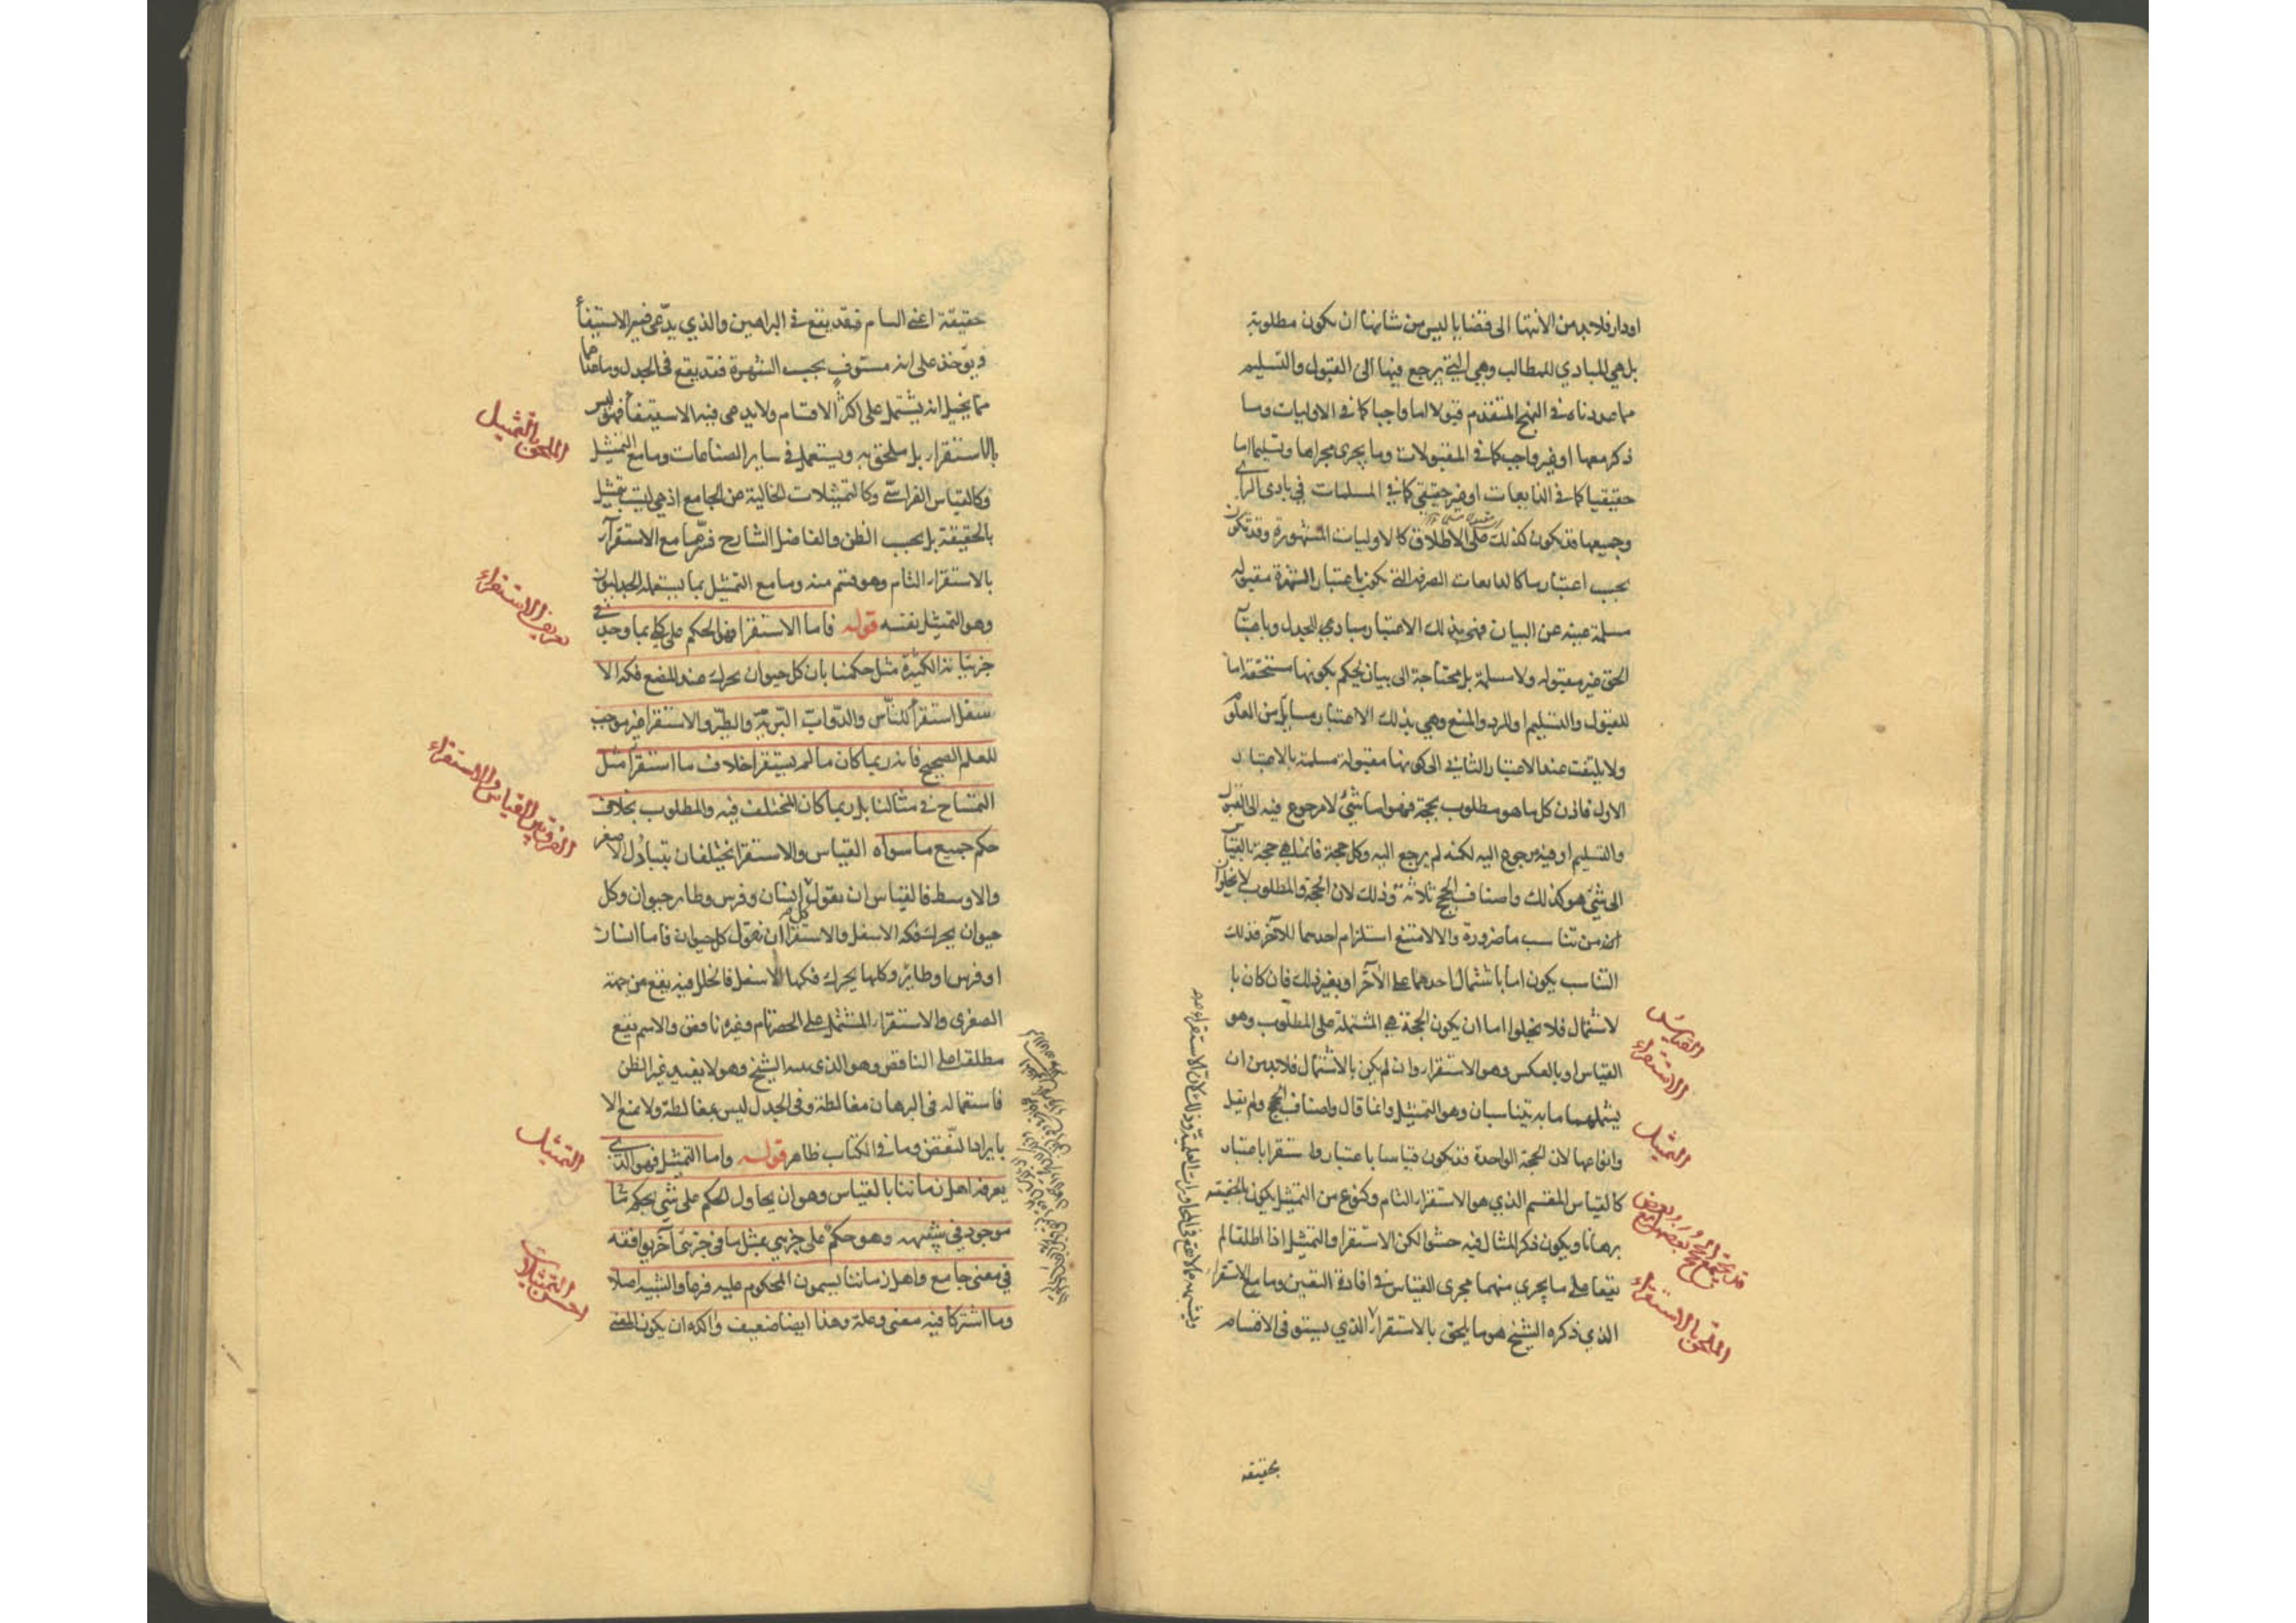 او دار فلابد من الانتها الى قضايا ليس من شانها ان يكون مطلوبة
بل هي المبادي للمطالب وهي التي يرجع فيها الى القبول والتسليم
مما عددناه في النهج المتقدم قبولا اما واجبا كما في الاوليات وما
ذكر معها او غير واجب كما في المقبولات وما يجري مجراها وتسليما اما
حقيقيا كما في الذايعات او غير حقيقي كما في المسلمات في بادى الراى
وجميعها قد يكون كذلك على الاطلاق كالاوليات المشهورة وقد تكون
بحسب اعتبار ما كالذايعات الصرفة التي يكون باعتبار الشهرة مقبولة
مسلمة غنية عن البيان فهي بذلك الاعتبار مبادي الجدل وباعتبار
الحق غير مقبولة ولا مسلمة بل محتاجة الى بيان يحكم بكونها مستحقة اما
للقبول والتسليم او للرد والمنع وهي بذلك الاعتبار مسايل من العلوم
ولا يلتفت عند الاعتبار الثاني الى كونها مقبولة مسلمة بالاعتبار
الاول فاذن كل ما هو مطلوب بحجة فهو اما شئ لا مرجوع فيه الى القبول
والتسليم او فيه مرجوع اليه لكنه لم يرجع اليه وكل حجة فانما هي حجة بالقياس
الى شئ هو كذلك واصناف الحجج ثلاثة وذلك لان الحجة والمطلوب لا يخلوا
من تناسب ما ضرورة والا لامتنع استلزام احدهما للآخر فذلك
التناسب يكون اما باشتمال احدهما على الآخر او بغير ذلك فان كان با
لاشتمال فلا يخلوا اما ان يكون الحجة هي المشتملة على المطلوب وهو
القياس او بالعكس وهو الاستقرار وان لم يكن بالاشتمال فلابد من ان
يشملهما ما به يتناسبان وهو التمثيل وانما قال واصناف الحجج ولم يقل
وانواعها لان الحجة الواحدة قد تكون قياسا باعتبار واستقرا باعتبار
كالقياس المقسم الذي هو الاستقرار التام وكنوع من التمثيل يكون بالحقيقة
برهانا ويكون ذكر المثال فيه حشوا لكن الاستقرا والتمثيل اذا اطلقا لم
يقعا على ما يجري منهما مجرى القياس في افادة اليقين وما مع الاستقرار
الذي ذكره الشيخ هو ما يلحق بالاستقرار الذي يستوفى الاقسام
القياس
الاستقراء
التمثيل
الملحق بالاستقراء
بحقيقة
حقيقة اعني التام فقد يقع في البراهين والذي يدعى فيه الاستيفأ
ويؤخذ على انه مستوف بحسب الشهرة فقد يقع في الجدل وما عداهما
مما يخيل انه يشتمل على اكثر الاقسام ولا يدعى فيه الاستيفأ فهو ليس
بالاستقرار بل ملحق به ويستعمل في ساير الصناعات وما مع التمثيل
وكالقياس الفراسي وكالتمثيلات الخالية عن الجامع اذ هي ليست بتمثيل
بالحقيقة بل بحسب الظن والفاضل الشارح فسرها مع الاستقرآر
بالاستقرار التام وهو قسم منه وما مع التمثيل بما يستعمله الجدليون
وهو التمثيل نفسه قوله فاما الاستقرا فهو الحكم على كلي بما وجد في
جزئياته الكثيرة مثل حكمنا بان كل حيوان يحرك عند المضغ فكه الا
سفل استقرأ للناس والدواب البرية والطير والاستقرا غير موجب
للعلم الصحيح فانه ربما كان ما لم يستقرا خلاف ما استقرأ مثل
التمساح في مثالنا بل ربما كان المختلف فيه والمطلوب بخلاف
حكم جميع ما سواه القياس والاستقرا يختلفان بتبادل الاصغر
والاوسط فالقياس ان يقول كل انسان وفرس وطاير حيوان وكل
حيوان يحرك فكه الاسفل والاستقرا ان نقول كل حيوان فاما انسان
او فرس او طاير وكلها يحرك فكها الاسفل فالخلل فيه يقع من جهة
الصغرى والاستقرار المشتمل على الحصر تام وغيره ناقص والاسم يقع
مطلقا على الناقص وهو الذي حده الشيخ وهو لا يفيد غير الظن
فاستعماله في البرهان مغالطة وفي الجدل ليس بمغالطة ولا يمنع الا
بايراد النقض وما في الكتاب ظاهر قوله واما التمثيل فهو الذي
يعرفه اهل زماننا بالقياس وهو ان يحاول الحكم على شئ بحكم ما
موجود في شبهه وهو حكم على جزئي بمثل ما في جزئي آخر يوافقه
في معنى جامع واهل زماننا يسمون المحكوم عليه فرعا والشبيه اصلا
وما اشتركا فيه معنى وعلة وهذا ايضا ضعيف واكده ان يكون المعنى
الملحق بالتمثيل
تعريف الاستقراء
الفرق بين القياس والاستقراء
التمثيل
احسن التمثيلات